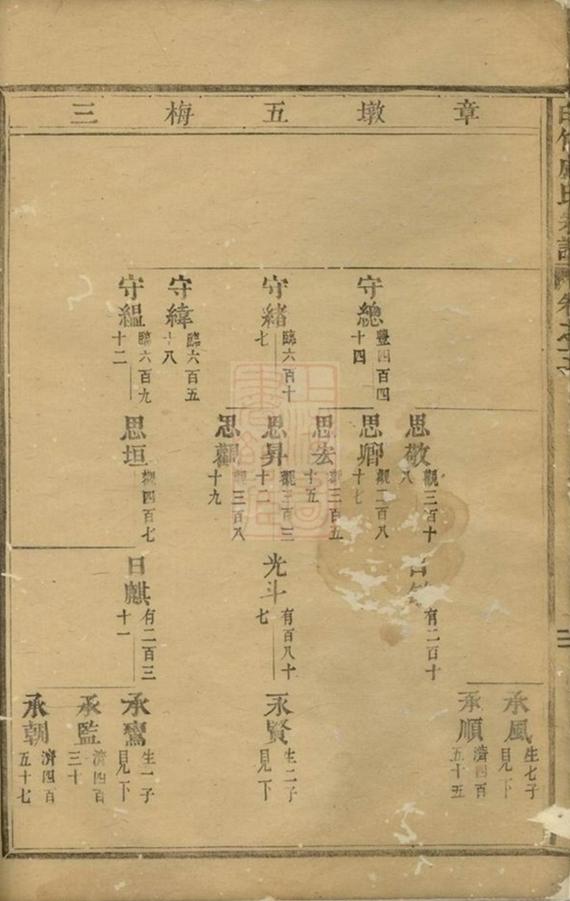 章墩五梅三
守總
豐四百四
十四
守緒
臨六百十
七
守緯
臨六百五
十八
守緼
臨六百九
十二
思敬
觀三百十
八
思卿
觀二百八
十七
思去
觀三百五
十五
思昇
觀三百三
十二
思觀
觀三百八
十九
思垣
觀四百七
有二百十
光斗
有百八十
七
日麒
有二百三
十一
承風
生七子
見下
承順
濟四百
五十五
承賢
生二子
見下
承鸞
生一子
見下
承監
濟四百
三十
承朝
濟四百
五十七